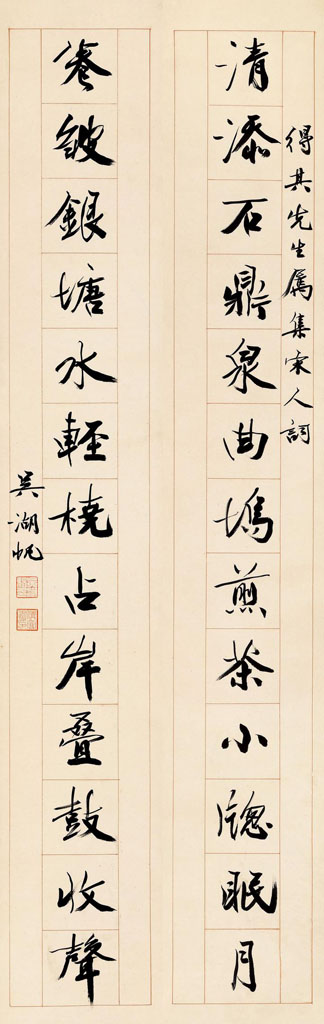 得其先生屬集宋人詞
清添石鼎泉曲塢煎茶小牕眠月
卷皺銀塘水輕橈占岸疊鼓收聲
吳湖帆